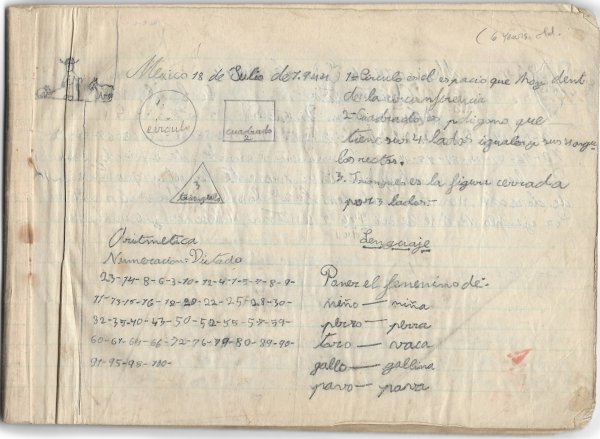 (6 years old.
Mexico 18 de Julio de 1.941
1
circulo
cuadrado
2
3
triangulo
1=Circulo es el espacio que hay dent
de la circunferencia
2-Cuadrado, es poligono que
tiene sus 4 lados iguales y sus 4 angu
los rectos.
3. Triangulo es la figura cerrada
por 3 lados.-
Aritmetica
Numeracion: Dictado
11-13-15-16-18-20-22-25-28-30-
32-35-40-43-50-52-55-57-59-
60-64-66-66-72-76-79-80-89-90-
91-95-98-100-
Lenguaje
Poner el femenino de:-
niño — niña
perro — perra
toro — vaca
gallo — gallina
pavo — pava